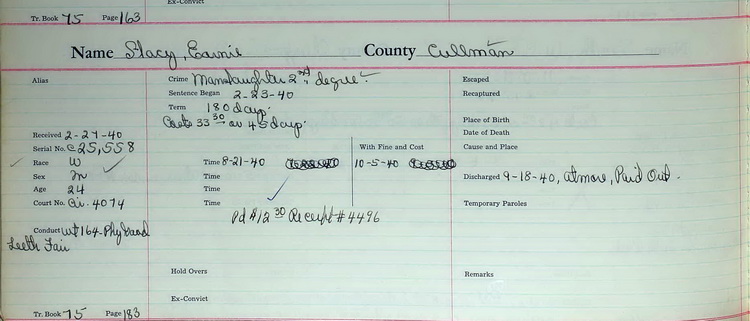 Ex-Convict
Tr. Book 75 Page 163
Name Stacy, Earnie County Cullman
Alias
Crime Manslaughter 2nd degree.
Escaped
Sentence Began 2-23-40
Recaptured
Term 180 days.
Costs 33 30 or 45 days.
Place of Birth
Date of Death
Received 2-27-40
Serial No. C25,558
With Fine and Cost
Cause and Place
Race W
Time 8-21-40
10-5-40
Sex M
Time
Discharged 9-18-40, Atmore, Paid Out.
Age 24
Time
Court No. Cir. 4074
Time
Temporary Paroles
Pd $12 30 Receipt #4496
Conduct wt 164-Phy Good
Teeth Fair
Hold Overs
Remarks
Ex-Convict
Tr. Book 75 Page 183